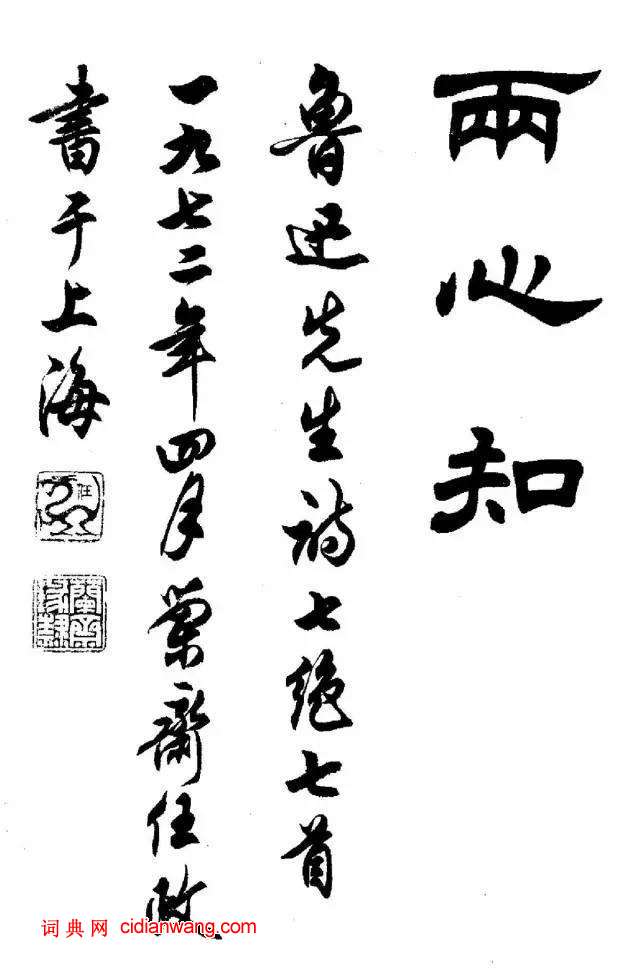 兩心知
魯迅先生詩七絕七首
一九七二年四月蘭齋任政
書于上海
词典网 cidianwang.com